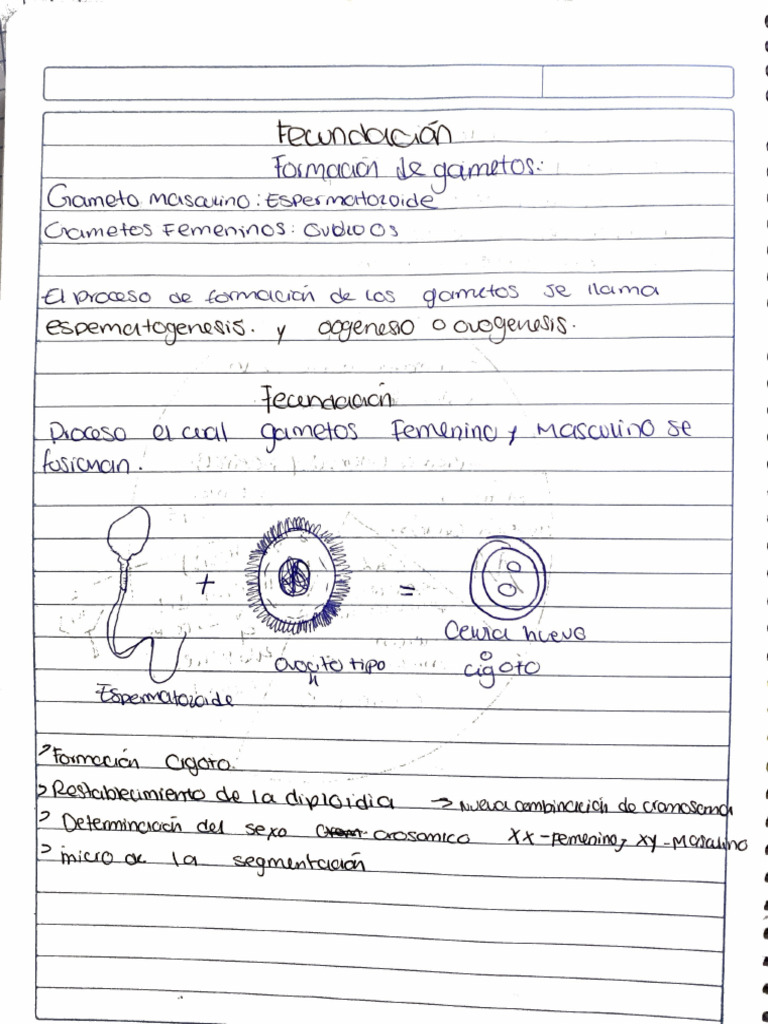 Fecundación
Formación de gametos:
Gameto masculino: Espermatozoide
Gametos Femeninos:
El proceso de formación de los gametos se llama
espematogenesis. y oogenesio o ovogenesis.
Fecundación
Proceso el cual gametos Femenino y Masculino se
fusionan.
+ =
Celula huevo
o
Ovocito tipo cigoto
II
Espermatozoide
> Formación Cigoto.
> Restablecimiento de la diploidia → Nueva combinación de cromosoma
> Determinación del sexo XX-Femenino, XY-Masculino
> inicio de la segmentación